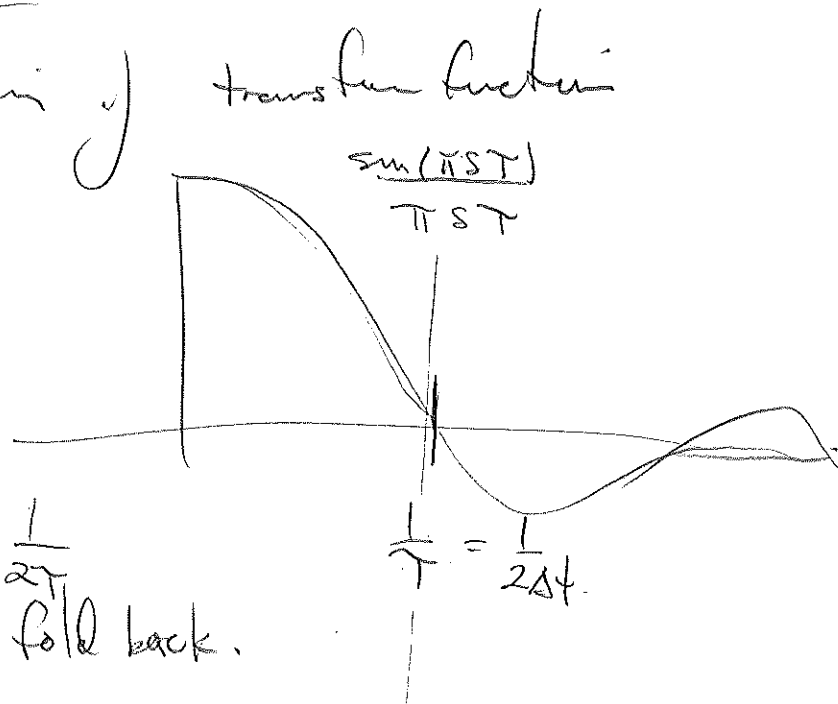 transfer function
sin(πST)
πST
1/2T
1/T = 1/2Δt.
fold back.